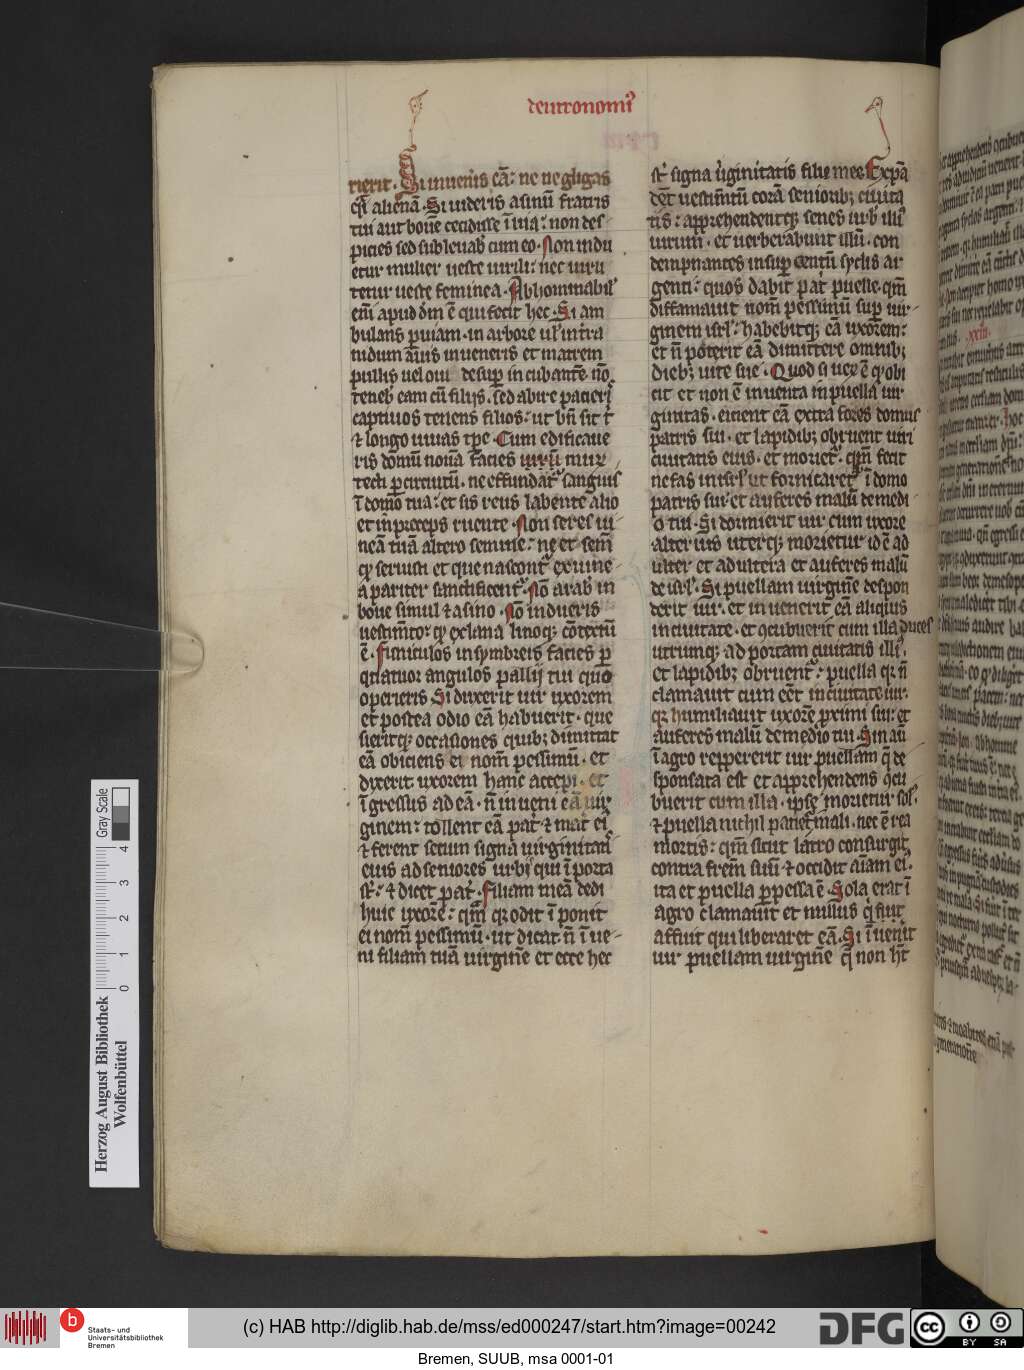 deutronomiꝰ
rierit. Si inueṅis eā: ne negligas
q̄si alienā. Si uideris asinū fratris
tui aut bouē cecidisse ī uia: non des-
picies sed subleuab̄ cum eo. Non indu
etur mulier ueste uirili: nec uir u
tetur ueste feminea. Abhominabil᷑
eni apud dm̄ ē qui fecit hec. Si am
bulans ꝑ uiam. in arbore ul᷑ in t̄ra
nidum auis inueneris et matrem
pullis uel ouis desuꝑ incubantē. nō
teneb̄ eam cū filijs. sed abire pacieris
captiuos tenens filios: ut bn̄ sit t᷑
⁊ longo uiuas tp̄e. Cum edificaue
ris domū nouā facies murū
tecti ꝑ circuitū. ne effundat᷑ sanguis
ī domo tua: et sis reus labente alio
et in preceps ruente. Non seres ui-
neā tuā altero semine: ne et sem̄
qd seruisti et que nascont᷑ ex uine-
a pariter sanctificent᷑. Nō arab̄ in
boue simul ⁊ asino. Nō indueris
uestim̄to: qd ex lana linoqꝫ cōtextū
ē. Funiculos in symbreis facies ꝑ
quatuor angulos pallij tui quo
operieris. Si duxerit uir uxorem
et postea odio eā habuerit. que
sieritqꝫ occasiones quibꝫ dimittat
eā obiciens ei nom̄ pessimū. et
dixerit uxorem hanc accepi. et
īgressus ad eā. n̄ inueni eā uir
ginem: tollent eā pat᷑ ⁊ mat᷑ ei᷑
⁊ ferent secum signa uirginitatis
eius ad seniores urbis qui ī porta
st᷑: ⁊ dicet pat᷑. Filiam meā dedi
huic uxorē: qm̄ qꝛ odit īponit
ei nom̄ pessimū. ut dicat n̄ īue-
ni filiam tuā uirginē et ecce hec
st᷑ signa uiginitatis filie mee. Expā
dēt uestim̄tū corā senioribꝫ ciuita
tis: apprehendentqꝫ senes urb᷑ illi᷑
uirum. et uerberabunt illū. con
dempnantes insuꝑ centū syclis ar
genti: quos dabit pat᷑ puelle. qm̄
diffamauit nom̄ pessimū suꝑ uir-
ginem isrl᷑: habebitqꝫ eā uxorem:
et n̄ poterit eā dimittere omnibꝫ
diebꝫ uite sue. Quod si uerū ē qd obi
cit et non ē inuenta in puella uir
ginitas. eicient eā extra fores domus
patris sui. et lapidibꝫ obruent uiri
ciuitatis eius. et moriet᷑. qm̄ fecit
nefas in isrl᷑ ut fornicaret᷑ ī domo
patris sui: et auferes malū de medi
o tui. Si dormierit uir cum uxore
alterius uterqꝫ morietur id ē ad
ulter et adultera et auferes malū
de isrl᷑. Si puellam uirginē despon
derit uir. et inuenerit eā aliquis
in ciuitate. et ꝯcubuerit cum illa duces
utrumqꝫ ad portam ciuitatis illi᷑.
et lapidibꝫ obruent᷑: puella qꝛ n̄
clamauit cum eēt in ciuitate uir.
qꝛ humiliauit uxorē proximi sui: et
auferes malū de medio tui. Sin aū
ī agro reppererit uir puellam q̄ de
sponsata est et apprehendens ꝯcu
buerit cum illa. ipse morietur sol᷑.
⁊ puella nichil patiet᷑ mali. nec ē rea
mortis: qm̄ sicut latro consurgit
contra frēm suū ⁊ occidit aīam ei᷑.
ita et puella ꝑpessa ē. Sola erat ī
agro clamauit et nullus
affuit qui liberaret eā. Si īuenit
uir puellam uirginē q̄ non h̄t
Gray Scale
0 1 2 3 4
Herzog August Bibliothek
Wolfenbüttel
b
Staats- und
Universitätsbibliothek
Bremen
(c) HAB http://diglib.hab.de/mss/ed000247/start.htm?image=00242
DFG
cc BY SA
Bremen, SUUB, msa 0001-01